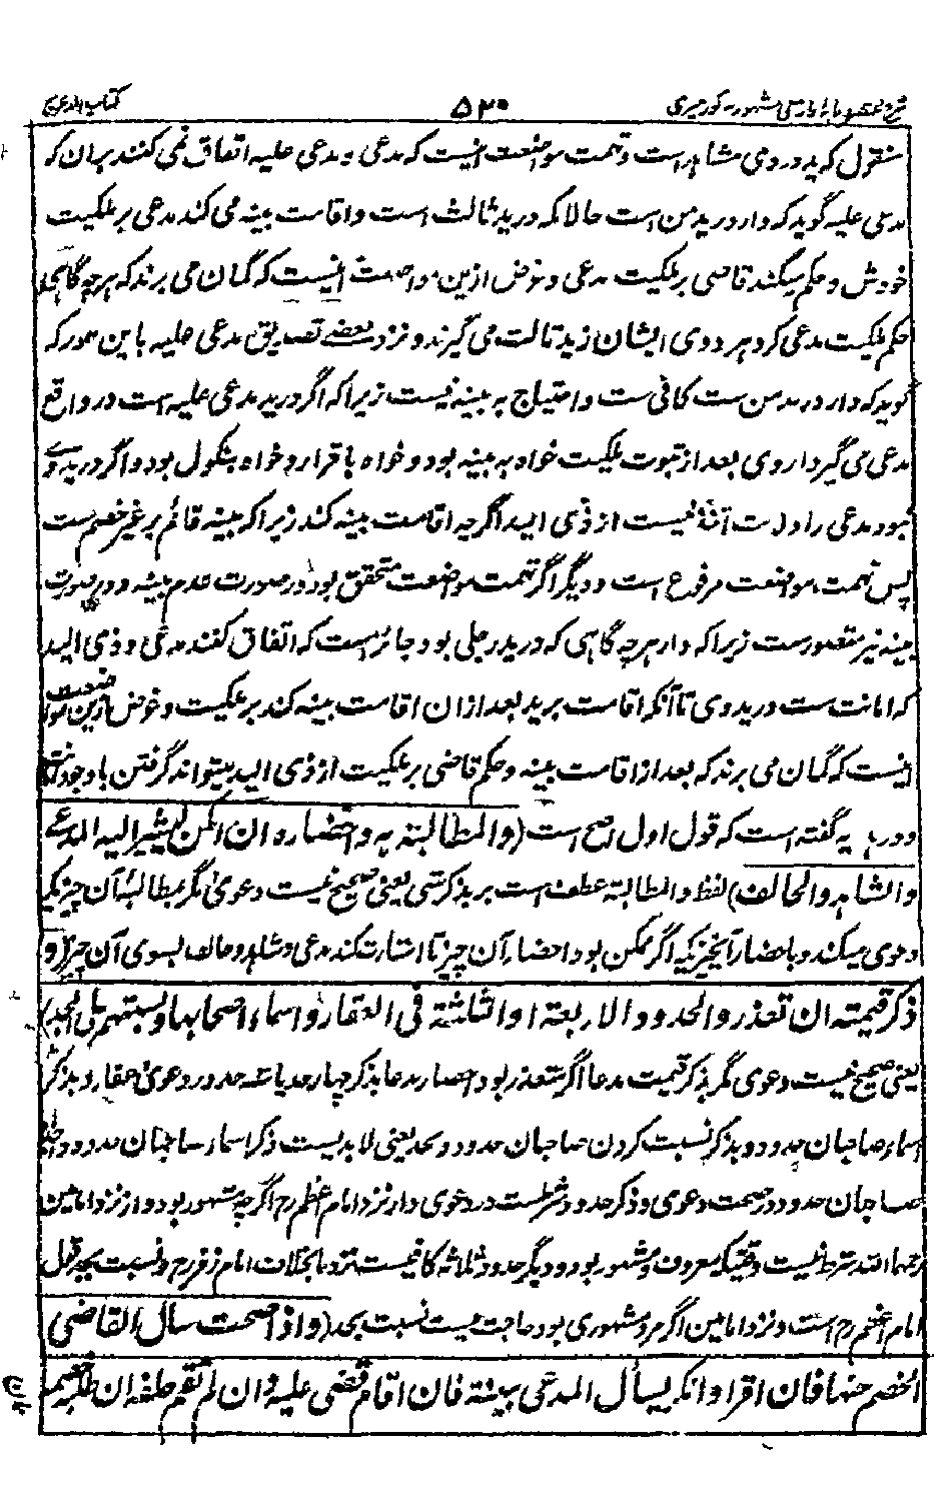 کتاب الدعوی ۵۲۰ شرح مختصر وقایه فارسی مشهور به کور میری
منقول که ید در وی مشاهد است و تهمت مواضعت اینست که مدعی و مدعی علیه اتفاق می کنند بران که
مدعی علیه گوید که دار در ید من است حالانکه در ید ثالث است و اقامت بینه می کند مدعی بر ملکیت
خودش و حکم میکند قاضی بر ملکیت مدعی و غرض ازین مواضعت اینست که گمان می برند که هرچه گاهی
حکم ملکیت مدعی کرد هر دوی ایشان از ید ثالث می گیرند و نزد بعضے تصدیق مدعی علیه باین طور که
گوید که دار در ید من ست کافی ست و احتیاج به بینه نیست زیرا که اگر در ید مدعی علیه است در واقع
مدعی می گیرد از وی بعد از ثبوت ملکیت خواه به بینه بود و خواه باقرار و خواه بنکول بود و اگر در ید وے
نبود مدعی را ولایت اخذ نیست از ذی الید اگرچه اقامت بینه کند زیرا که بینه قائم بر غیر خصم ست
پس تهمت مواضعت مرفوع است و دیگر اگر تهمت مواضعت متحقق بود در صورت عدم بینه و در صورت
بینه نیز متصورست زیرا که دار هرچه گاهی که در ید رجلی بود جائزست که اتفاق کنند مدعی و ذی الید
که امانت ست در ید وی تا آنکه اقامت بر ید بعد ازان اقامت بینه کند بر ملکیت و غرض ازین مواضعت
اینست که گمان می برند که بعد از اقامت بینه و حکم قاضی بر ملکیت از ذی الید میتواند گرفتن باوجود
و در هدایه گفته است که قول اول اصح است (والمطالبة به واحضاره ان امکن لیشیر الیه المدعے
والشاهد والحالف) لفظ والمطالبة عطف است بر بذکر شی یعنی صحیح نیست دعوی مگر بمطالبۀ آن چیز که
دعوی میکند و باحضار آنچیزیکه اگر ممکن بود احضار آن چیز تا اشارت کند مدعی و شاهد و حالف بسوی آن چیز (و
ذکر قیمته ان تعذر والحدود الاربعة او الثلثة فی العقار واسماء اصحابها ونسبتهم الی الجد)
یعنی صحیح نیست دعوی مگر بذکر قیمت مدعا اگر متعذر بود احضار مدعا بذکر چهار حد یا سه حد در دعوی عقار و بذکر
اسماء صاحبان حدود و بذکر نسبت کردن صاحبان حدود بجد یعنی لابدیست ذکر اسماء صاحبان حدود و جد
صاحبان حدود در صحت دعوی و ذکر حدود شرطست در دعوی دار نزد امام اعظم رح اگرچه مشهور بود و از نزد امامین
رحمهما الله شرط نیست وقتیکه معروف و مشهور بود و دیگر حدود ثلاثه کافیست نزد ما بخلاف امام زفر رح و نسبت بجد قول
امام اعظم رح است و نزد امامین اگر مرد مشهوری بود حاجت نیست نسبت بجد (واذا صحت سال القاضی
الخصم عنها فان اقر او انکر یسأل المدعی بینة فان اقام قضی علیه وان لم تقم حلفه ان طلبه خصمه